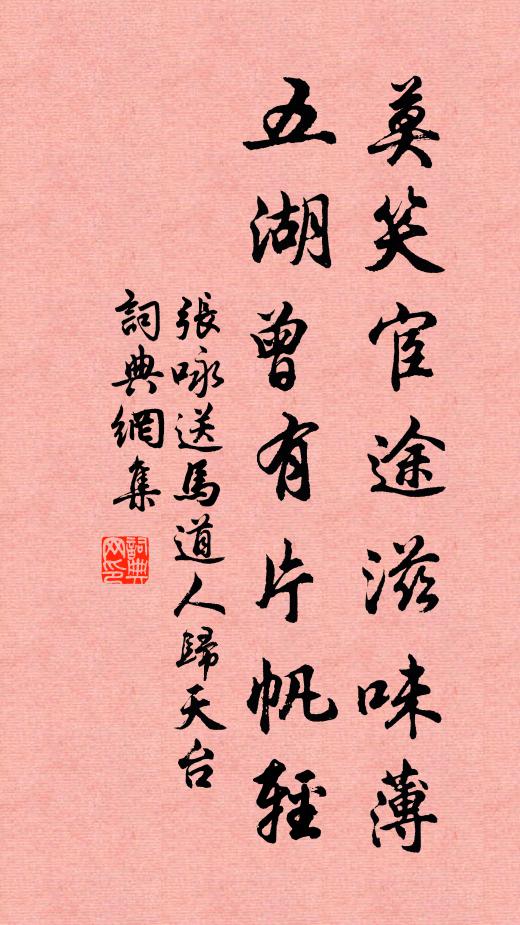 莫笑宦途滋味薄
五湖曾有片帆輕
張咏送馬道人歸天台
詞典網集
詞典网印